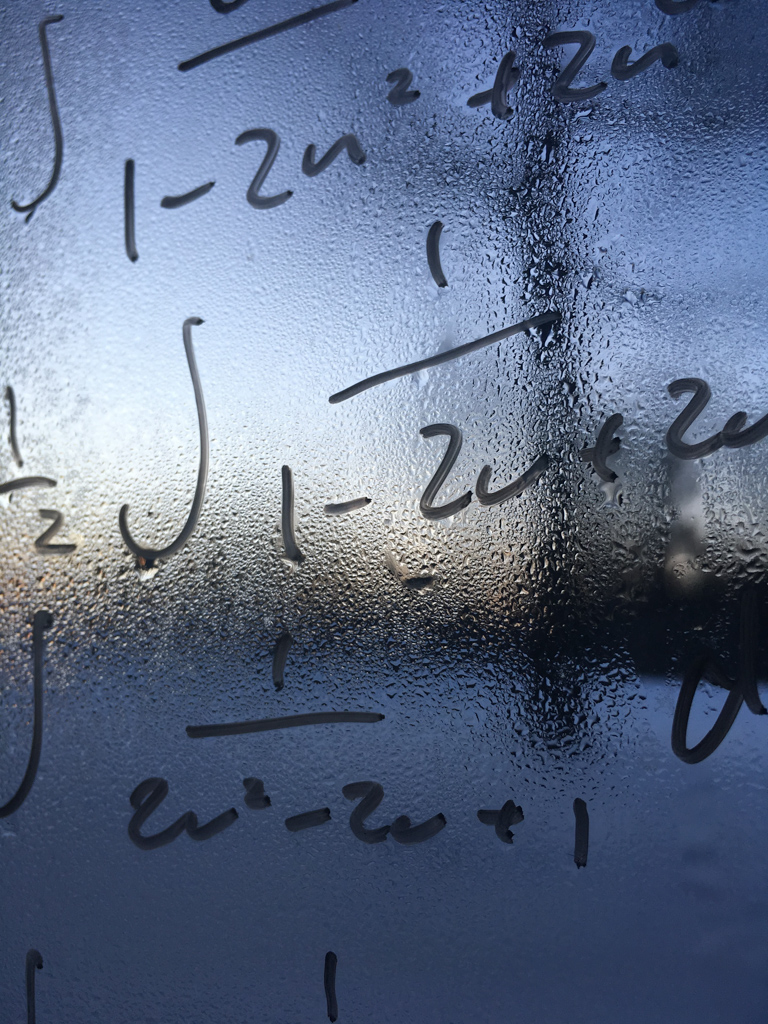 ∫ —
1 - 2u² + 2u
1/2 ∫ 1/(1 - 2u + 2u
∫ 1/(2u² - 2u + 1) d
∫ 1